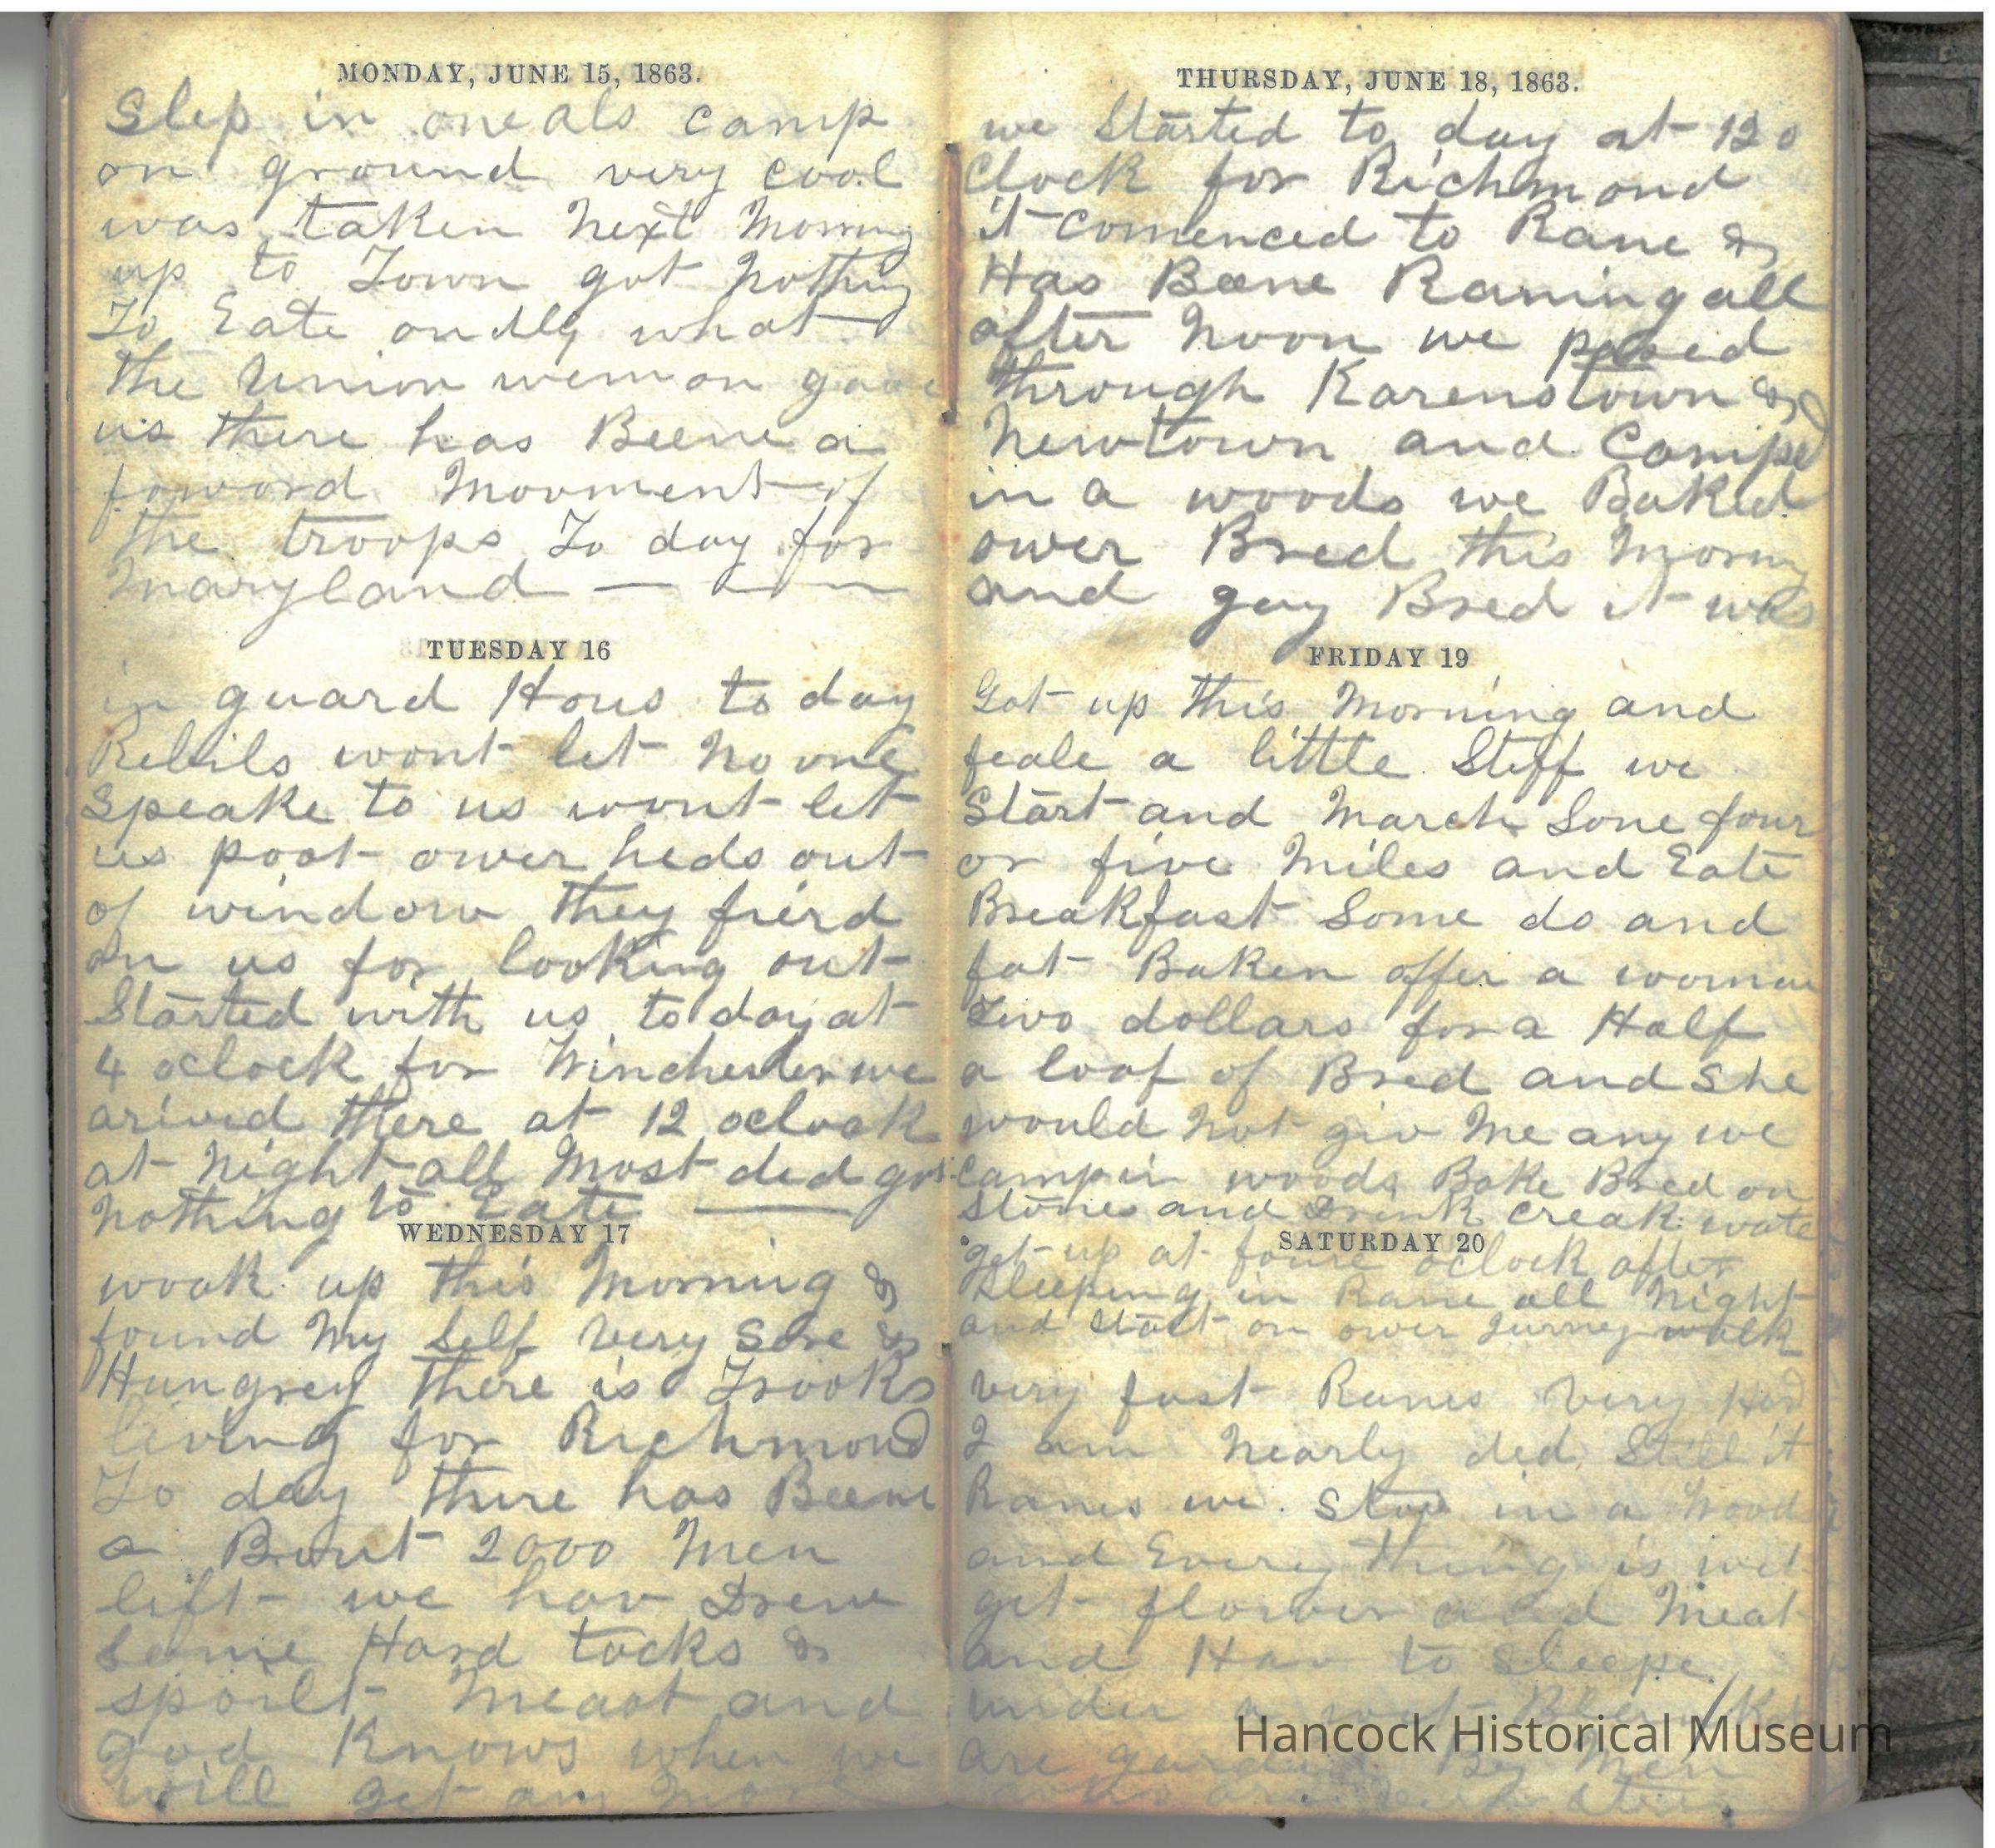 MONDAY, JUNE 15, 1863.
Slep in oneals camp
on ground very cool
was taken next Morning
up to Town got nothing
To Eate ondly what
the Union wemon gave
us there has Beene a
foword Movment of
the troops To day for
Maryland —
TUESDAY 16
in guard Hous to day
Rebils wont let no one
Speake to us wont let
us poot ower heds out
of window they fierd
on us for looking out
Started with us to day at
4 oclock for Winchester we
arived there at 12 oclock
at Night all Most ded got
nothing to Eate —
WEDNESDAY 17
wook up this Morning &
found My Self very Sore &
Hungrey there is Trooks
living for Richmond
To day there has Beene
a Bout 2000 Men
lift we hav Drew
some Hard tacks &
spoilt Meaot and
god Knows when we
will get any More
THURSDAY, JUNE 18, 1863.
we Started to day at 12 o
Clock for Richmond
it Comenced to Rane &
Has Beene Raning all
after Noon we pased
through Karenstown &
Newtown and Camped
in a woods we Baked
ower Bred this Morny
and gay Bred it was
FRIDAY 19
Got up this Morning and
feale a little Stiff we
Start and March Some four
or five Miles and Eate
Breakfast Some do and
fat Baken offer a woman
Two dollars for a Half
a loaf of Bred and She
would not giv Me any we
camp in woods Bake Bred on
stones and Drink Creak wate
SATURDAY 20
get up at foure oclock after
Sleeping in Rane all Night
and start on ower Jurney walk
very fast Ranes very Hard
I am Nearly ded Still it
Ranes we Stop in a wood
and Every thing is wet
get flower and Meat
and Hav to Sleepe
under a wet
are By Men
who are
Hancock Historical Museum